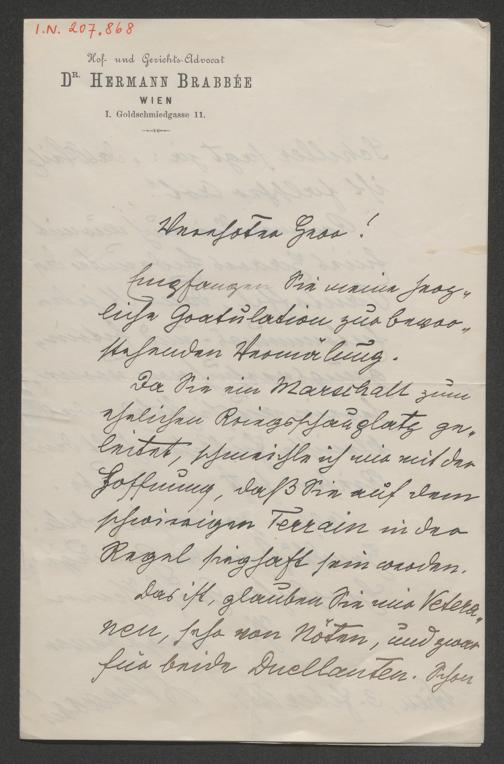 I.N. 207.868
Hof- und Gerichts-Advocat
DR. HERMANN BRABBÉE
WIEN
I. Goldschmiedgasse 11.
Verehrter Herr!
Empfangen Sie meine herz„
liche Gratulation zur bevor„
stehenden Vermälung.
Da Sie ein Marschall zum
ehelichen Kriegsschauplatz ge„
leitet, schmeichle ich mir mit der
Hoffnung, daß Sie auf dem
schwierigen Terrain in der
Regel sieghaft sein werden.
Das ist, glauben Sie mir Vetera„
nen, sehr von Nöten, und zwar
für beide Duellanten. Schon